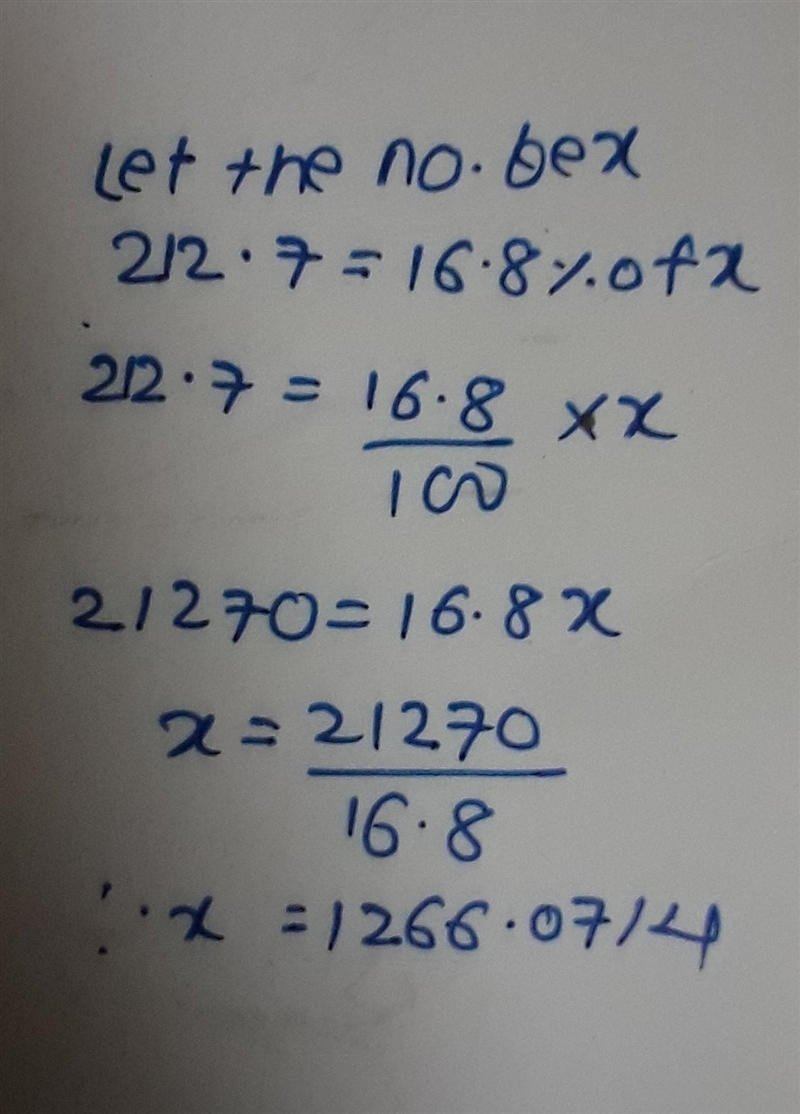 Let the no. be x
212.7 = 16.8% of x
212.7 = 16.8/100 × x
21270 = 16.8x
x = 21270/16.8
∴ x = 1266.0714